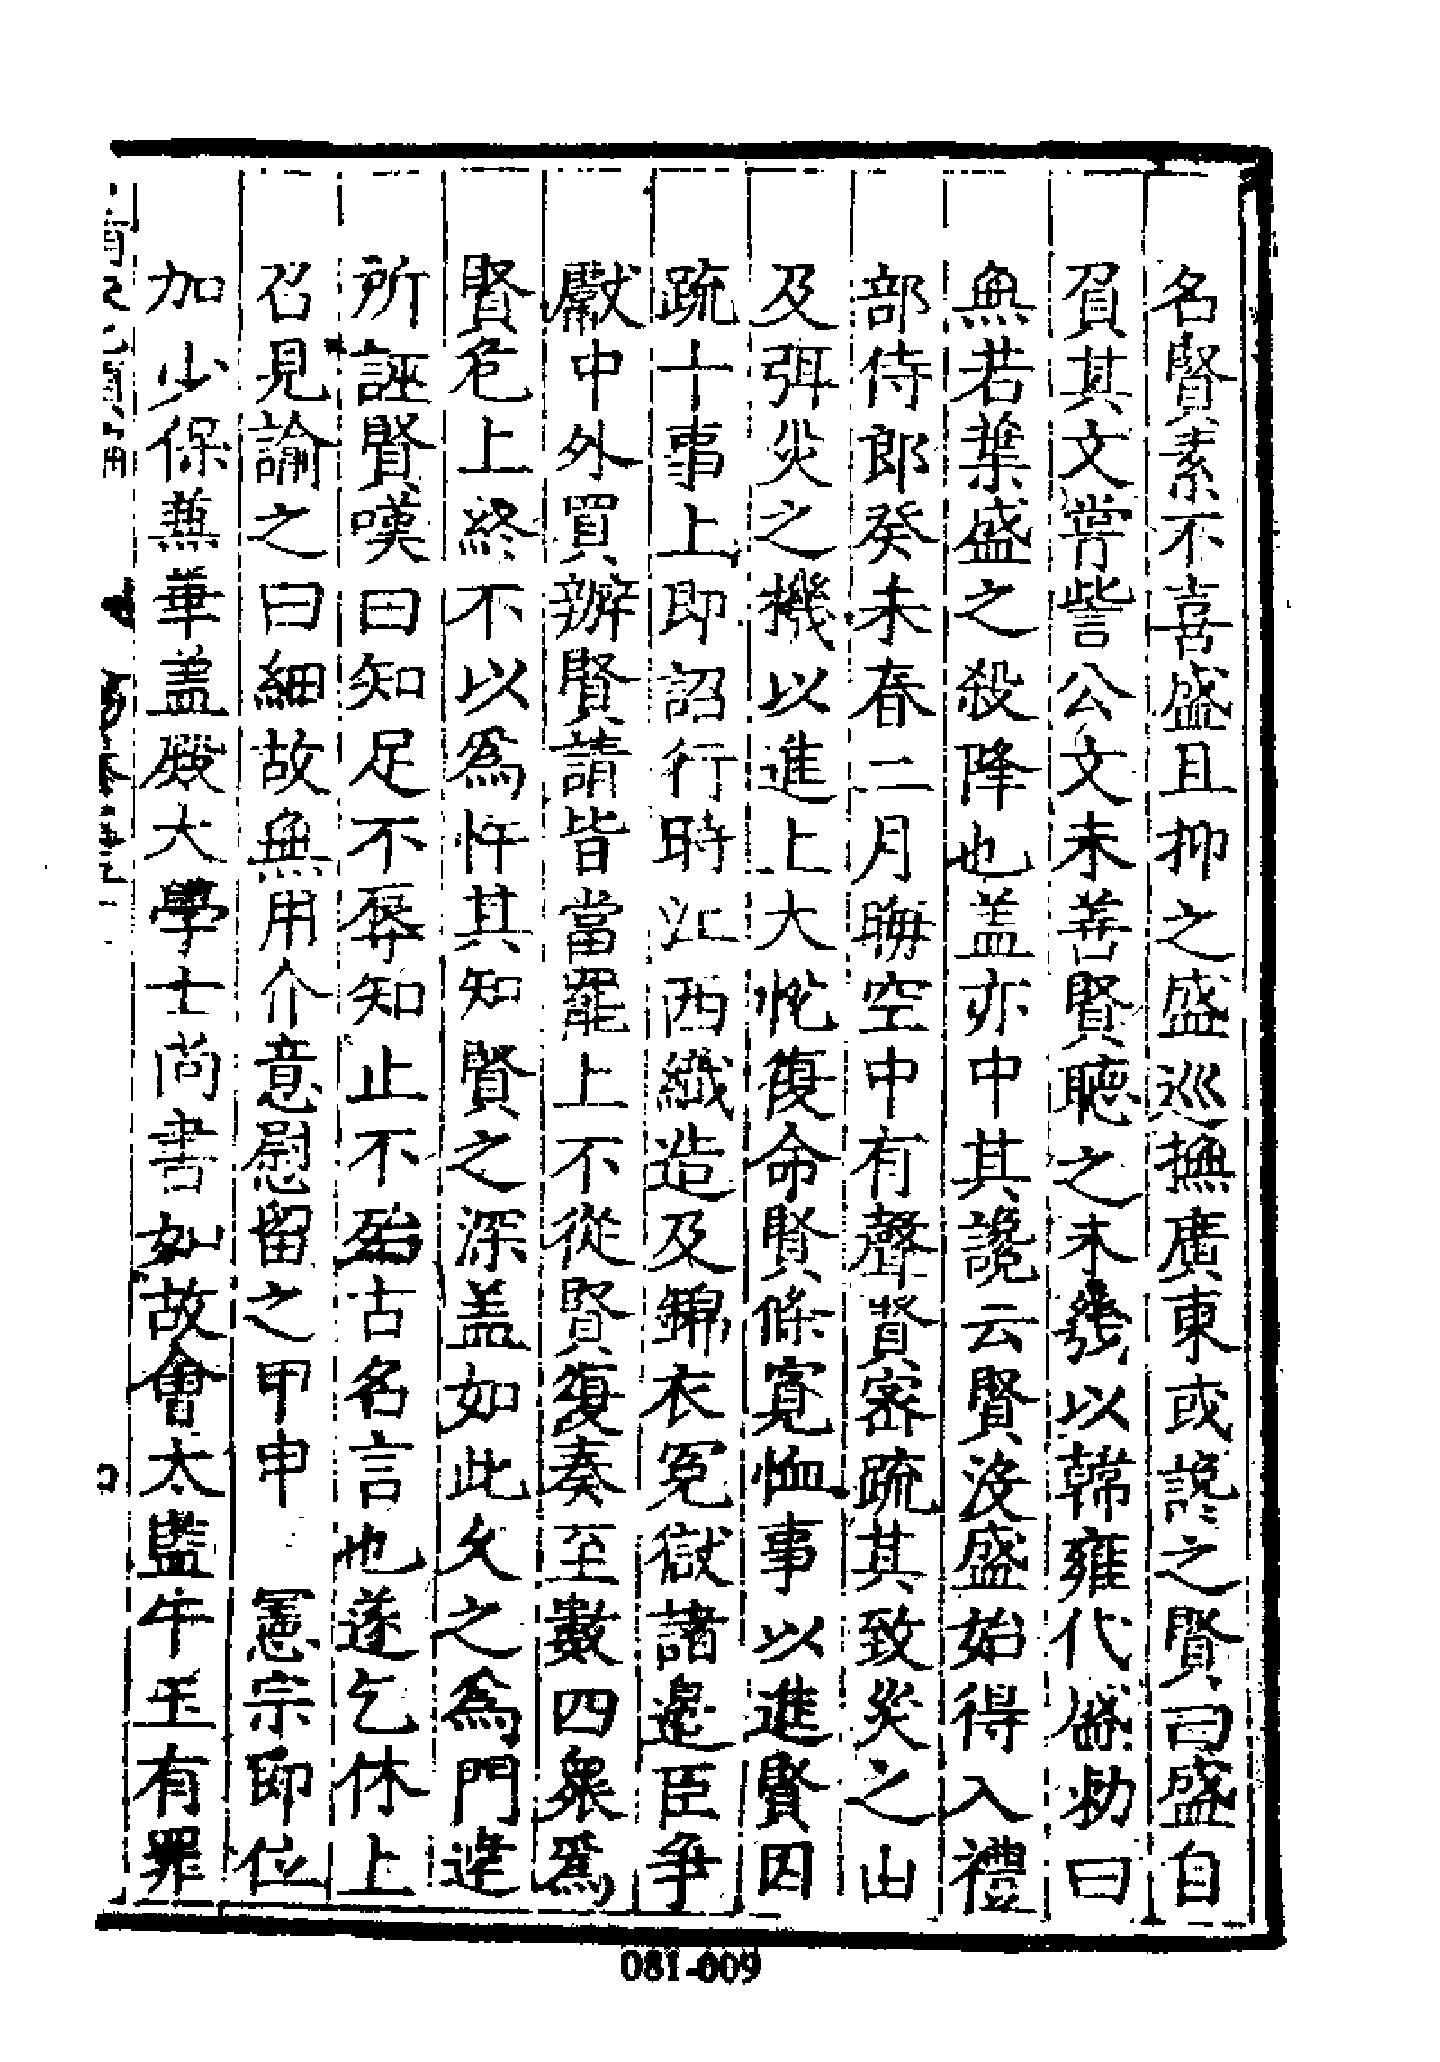 名賢素不喜盛且抑之盛巡撫廣東或讒之賢曰盛自
負其文嘗訾公文未善賢聴之未發以韓雍代盛勑曰
無若葉盛之殺降也盖亦中其讒云賢没盛始得入禮
部侍郎癸未春二月晦空中有聲賢密疏其致災之由
及弭災之機以進上大恱復命賢條寛恤事以進賢因
疏十事上即詔行時江西織造及錦衣冤獄諸邊臣争
獻中外買辦賢請皆當罷上不從賢復奏至數四衆爲
賢危上終不以爲忤其知賢之深盖如此久之爲門達
所誣賢嘆曰知足不辱知止不殆古名言也遂乞休上
召見諭之曰細故無用介意慰留之甲申 憲宗即位
加少保兼華盖殿大學士尚書如故會太監牛玉有罪
081-009